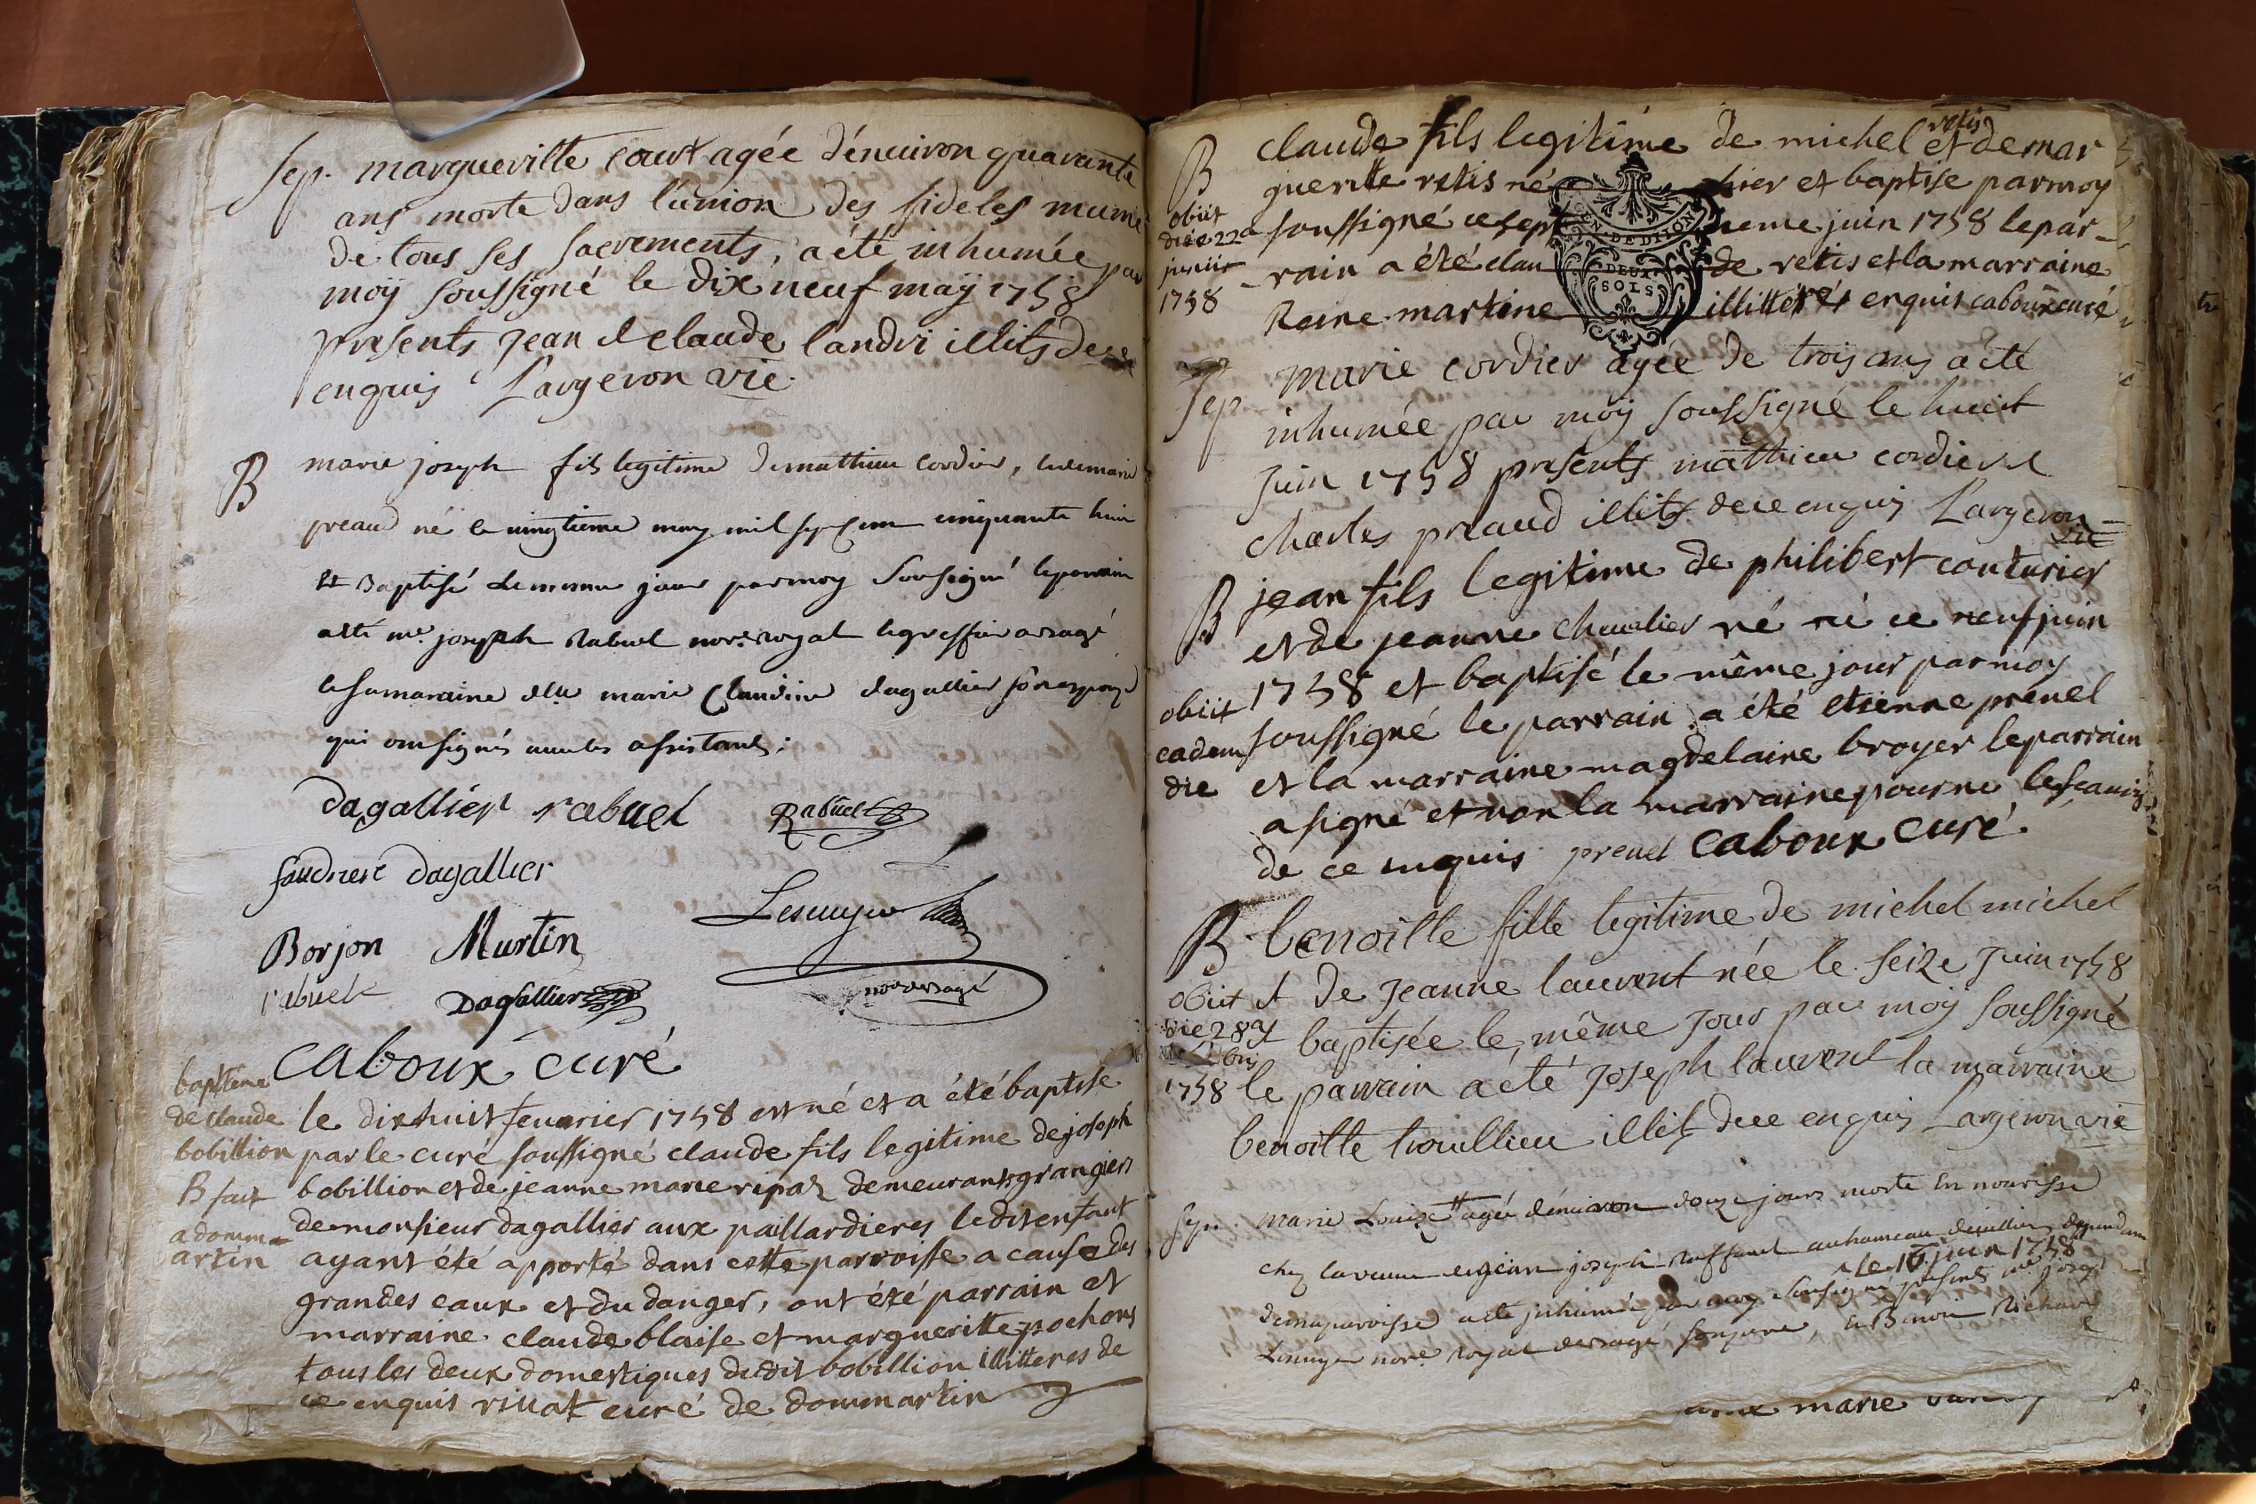 Sep. margueritte court agée d'enuiron quarante
ans morte dans l'union des fideles munie
de tous ses sacrements, a été inhumée par
moÿ soussigné le dix neuf maÿ 1758
presents jean et claude landri illits de ce
enquis Largeron vic
B
marie joseph fils legitime de mathieu cordier, et de marie
preaud né le vingtieme may mil sept cent cinquante huit
et baptisé le meme jour par moy soussigné le parrain
a été me. joseph Rabuel nore. royal
la maraine dlle marie Claudine dagallier son epouze
qui ont signés avec les assistants;
dagallier rabuel Rabuel
dagallier
Lescuyer
Borjon Martin
rabuel Dagallier
Caboux curé
baptême
de claude
bobillion
B fait
a domm-
artin
le dix huit feurier 1758 est né et a été baptise
par le curé soussigné claude fils legitime de joseph
bobillion et de jeanne marie ripaz demeurants grangiers
de monsieur dagallier aux paillardieres le dit enfant
ayant été apporté dans cette parroisse a cause des
grandes eaux et du danger, ont été parrain et
marraine claude blaise et margueritte pochons
tous les deux domestiques dudit bobillion illitteres de
ce enquis rivat curé de dommartin
B
obiit
die 22a
junii
1758
claude fils legitime de michel retis et de mar
gueritte retis né hier et baptise par moy
soussigné ce sept ieme juin 1758 le par-
rain a été clau de retis et la marraine
Reine martine illitterés enquis caboux curé
GEN. DE DIJON
DEUX
SOLS
Sep
marie cordier agée de trois ans a été
inhumée par moÿ soussigné le huit
juin 1758 presents mathieu cordier et
charles preaud illits de ce enquis Largeron
vic
B
obiit
eadem
die
jean fils legitime de philibert couturier
et de jeanne chevalier né ce neuf juin
1758 et baptisé le même jour par moy
soussigné le parrain a été etienne prenel
et la marraine magdelaine broyer le parrain
a signé et non la marraine pour ne le scavoir
de ce enquis prenel caboux curé
B
obiit
die 28a
bris
1758
benoitte fille legitime de michel michel
et de jeanne laurent née le seize juin 1758
et baptisée le même jour par moÿ soussigné
le parrain a été joseph laurent la marraine
benoitte illit de ce enquis Largeron vic
Sep.
marie Louize agée d'enuiron douze jours morte en nourisse
chez la veuve de jean joseph au hameau dependant
le 16 juin 1758
de ma paroisse a été inhumée par moy soussigné presents me. joseph
Lescuyer nore. royal son pere, et Benoit Richard
marie